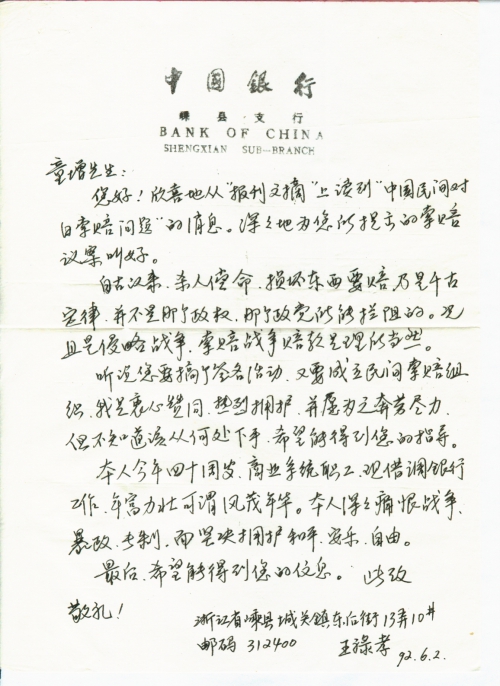 中國銀行
嵊县·支行
BANK OF CHINA
SHENGXIAN SUB—BRANCH
童增先生：
您好！欣喜地从“报刊文摘”上读到“中国民间对
日索赔问题”的消息。深深地为您所提出的索赔
议案叫好。
自古以来，杀人偿命，损坏东西要赔，乃是千古
定律，并不是那个政权，那个政党所能拦阻的。况
且是侵略战争，索赔战争赔款是理所当然。
听说您要搞个签名活动，又要成立民间索赔组
织，我是衷心赞同，热烈拥护，并愿为之奔劳尽力，
但不知道该从何处下手，希望能得到您的指导。
本人今年四十周岁，商业系统职工，现借调银行
工作，年富力壮可谓风茂年华。本人深深痛恨战争、
暴政、专制，而坚决拥护和平、安乐、自由。
最后，希望能得到您的信息。 此致
敬礼！
浙江省嵊县城关镇东后街13弄10#
邮码 312400 王禄孝 92.6.2.